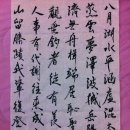 八月湖水平涵虛混太
雲夢澤波撼岳陽
濟無舟楫端居恥
觀垂釣者徒有羨
人事有代謝往來成
山留勝跡我輩復登